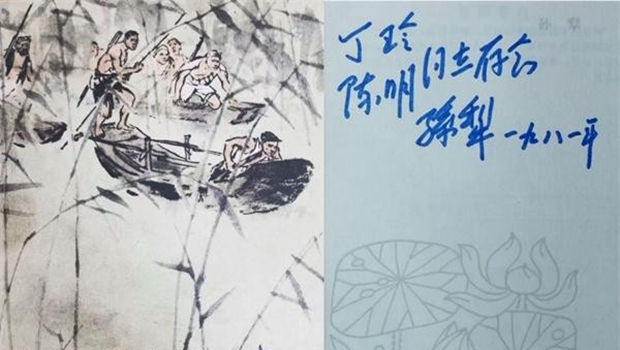 丁玲
陈明同志存念
孫犁 一九八一年